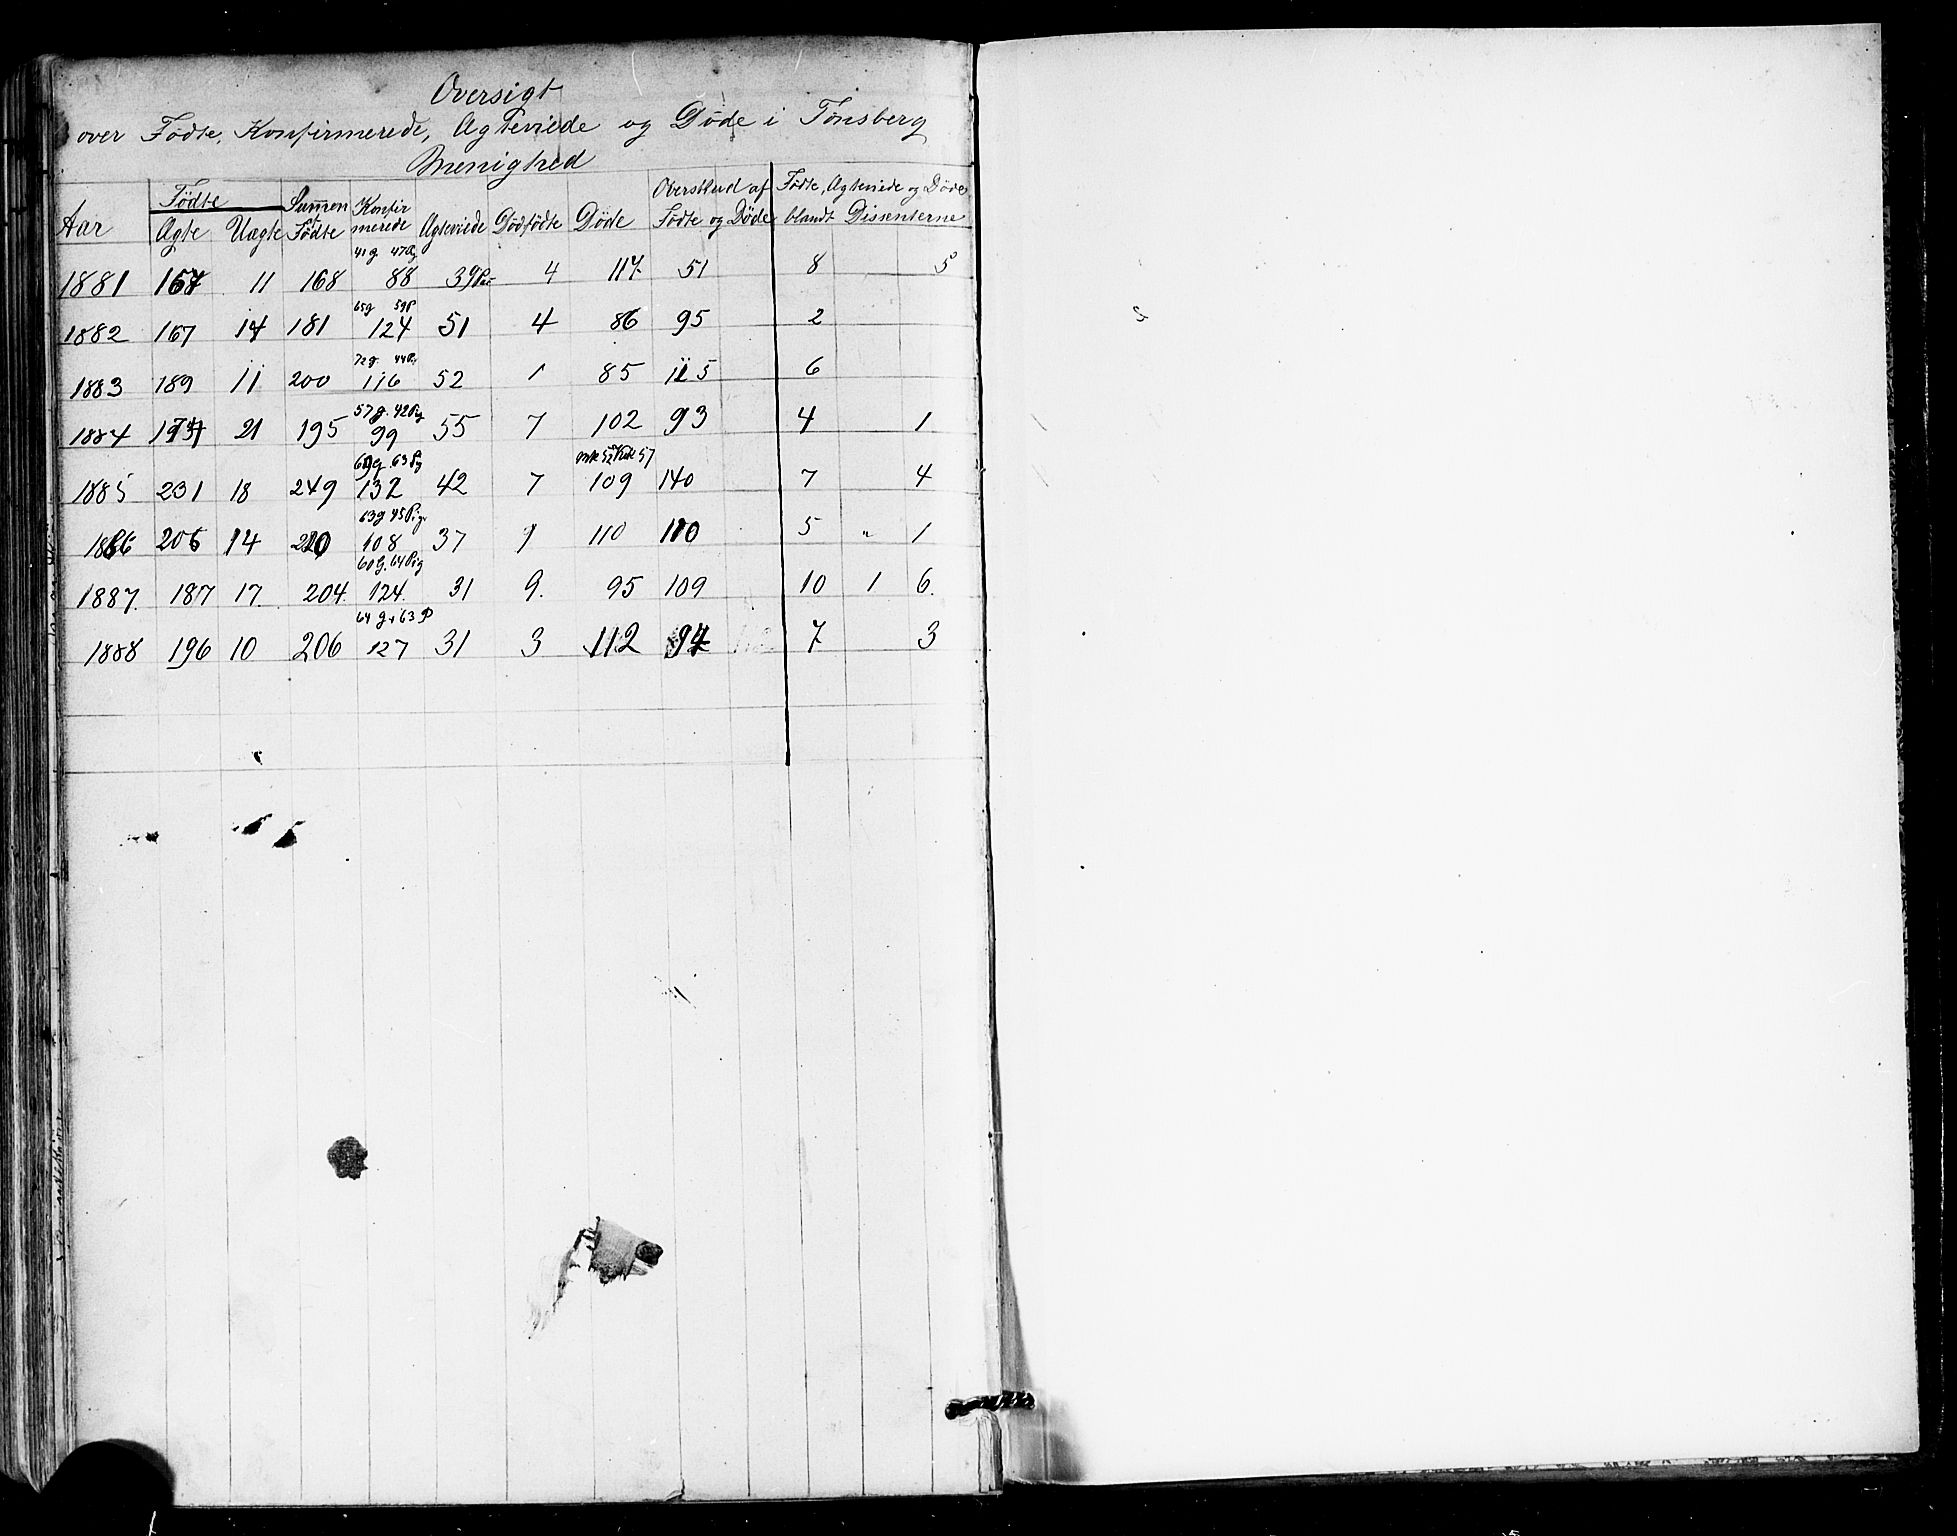 Oversigt
over Fødte, Konfirmerede, Ægteviede og Døde i Tønsberg
Menighed
Aar Fødte Ægte Uægte Summen Fødte Konfirmerede Ægteviede Dødfødte Døde Overskud af Fødte og Døde Fødte, Ægteviede og Døde blandt Dissenterne
41 g 47 Pg
1881 157 11 168 88 39 Par 4 117 51 8 5
65 g 59 P
1882 167 14 181 124 51 4 86 95 2
72 g. 44 P.
1883 189 11 200 116 52 1 85 115 6
57 g. 42 Pg
1884 174 21 195 99 55 7 102 93 4 1
69 g. 63 Pg 52 57
1885 231 18 249 132 42 7 109 140 7 4
63 g 45 Pig.
1886 206 14 220 108 37 1 110 110 5 " 1
60 G. 64 Pig
1887. 187 17. 204. 124. 31 9. 95 109 10 1 6.
64 g + 63 P
1888 196 10 206 127 31 3 112 94 7 3